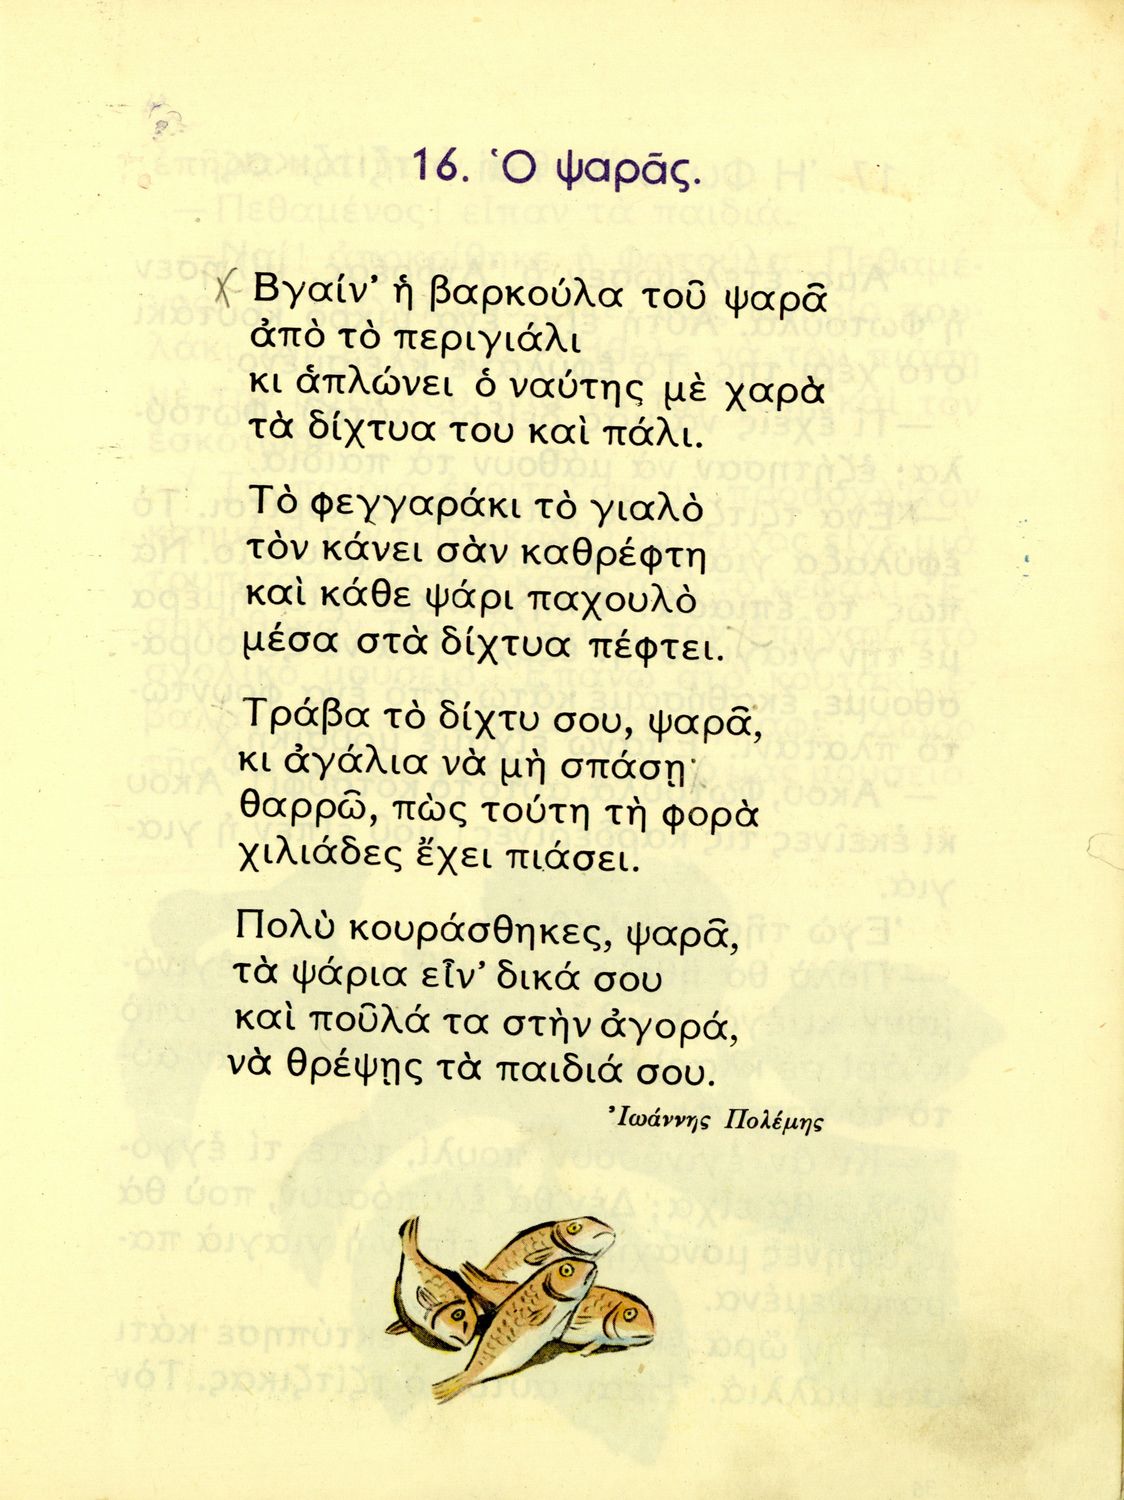 16. Ὁ ψαρᾶς.
Βγαίν' ἡ βαρκούλα τοῦ ψαρᾶ
ἀπὸ τὸ περιγιάλι
κι ἁπλώνει ὁ ναύτης μὲ χαρὰ
τὰ δίχτυα του καὶ πάλι.
Τὸ φεγγαράκι τὸ γιαλὸ
τὸν κάνει σὰν καθρέφτη
καὶ κάθε ψάρι παχουλὸ
μέσα στὰ δίχτυα πέφτει.
Τράβα τὸ δίχτυ σου, ψαρᾶ,
κι ἀγάλια νὰ μὴ σπάσῃ·
θαρρῶ, πὼς τούτη τὴ φορὰ
χιλιάδες ἔχει πιάσει.
Πολὺ κουράσθηκες, ψαρᾶ,
τὰ ψάρια εἶν' δικά σου
καὶ ποῦλά τα στὴν ἀγορά,
νὰ θρέψῃς τὰ παιδιά σου.
Ἰωάννης Πολέμης